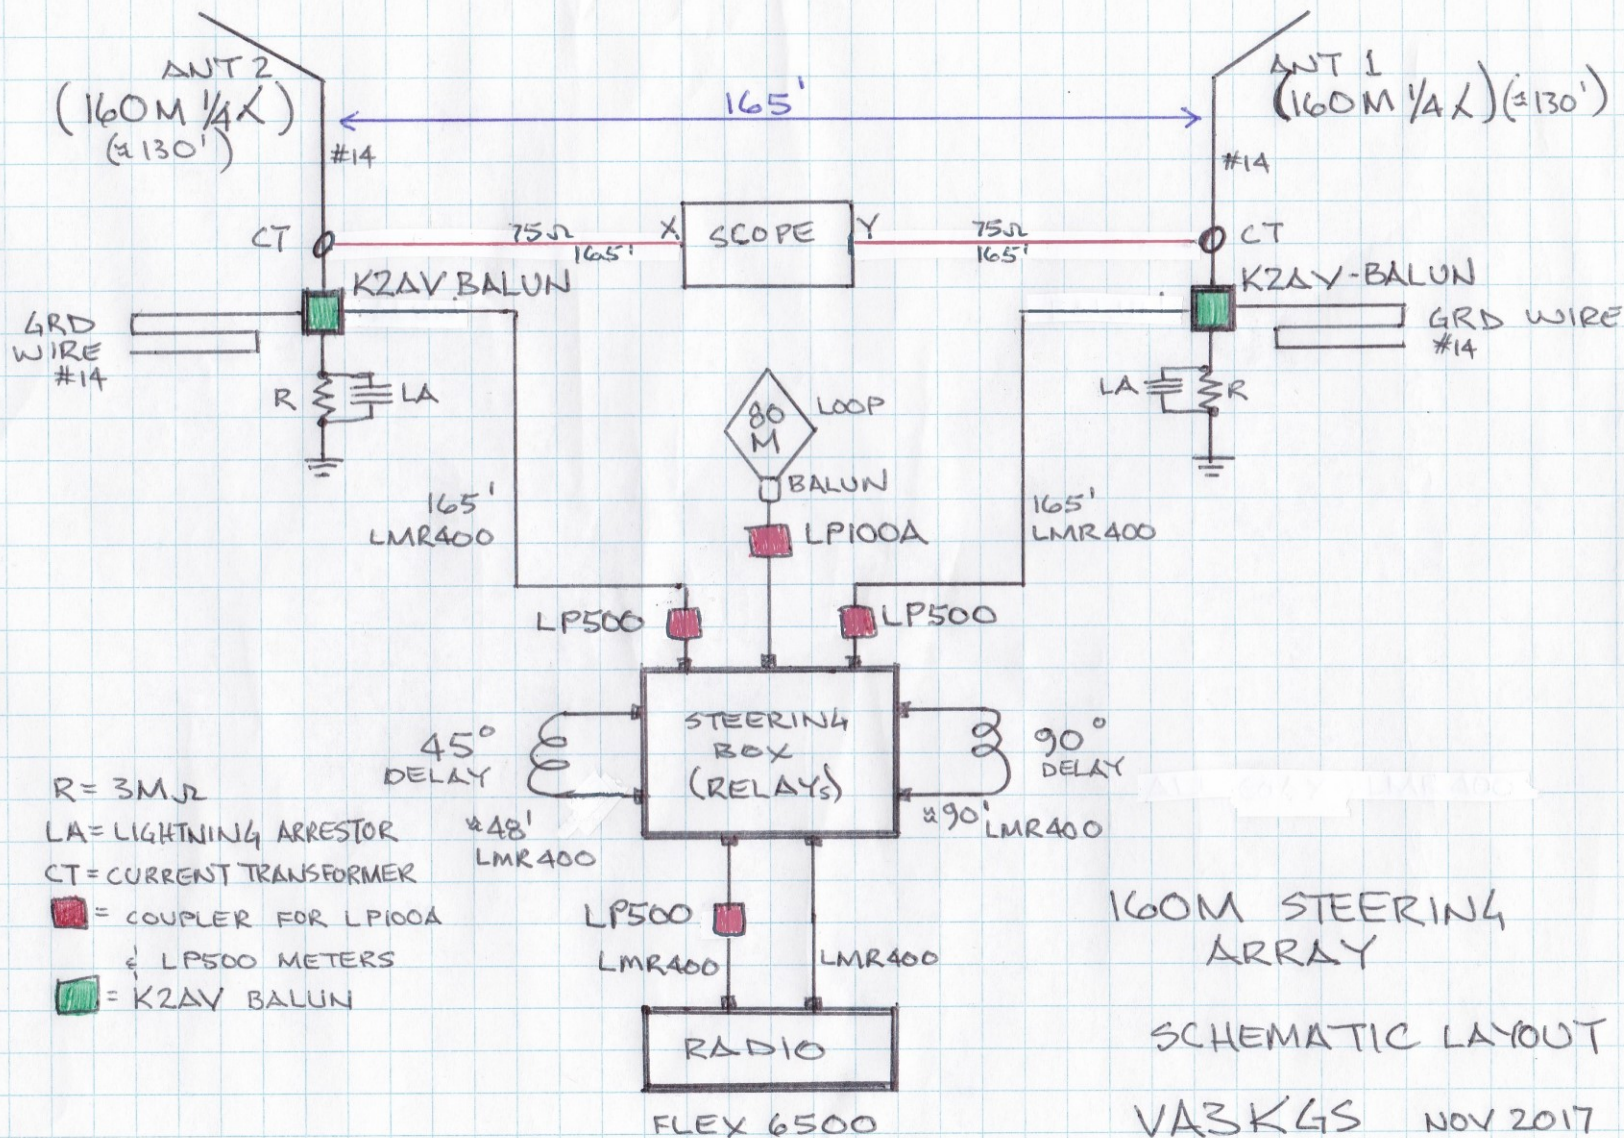 ANT 2
(160M 1/4 λ)
(≈130')
#14
165'
ANT 1
(160M 1/4 λ) (≈130')
#14
CT
75Ω
165'
X
SCOPE
Y
75Ω
165'
CT
K2AV BALUN
K2AV-BALUN
GRD
WIRE
#14
GRD WIRE
#14
R
LA
LA
R
80
M
LOOP
BALUN
165'
LMR400
LP100A
165'
LMR400
LP500
LP500
45°
DELAY
≈48'
LMR400
STEERING
BOX
(RELAYS)
90°
DELAY
≈90' LMR400
R= 3MΩ
LA= LIGHTNING ARRESTOR
CT= CURRENT TRANSFORMER
= COUPLER FOR LP100A
& LP500 METERS
= K2AV BALUN
LP500
LMR400
LMR400
RADIO
FLEX 6500
160M STEERING
ARRAY
SCHEMATIC LAYOUT
VA3KGS NOV 2017